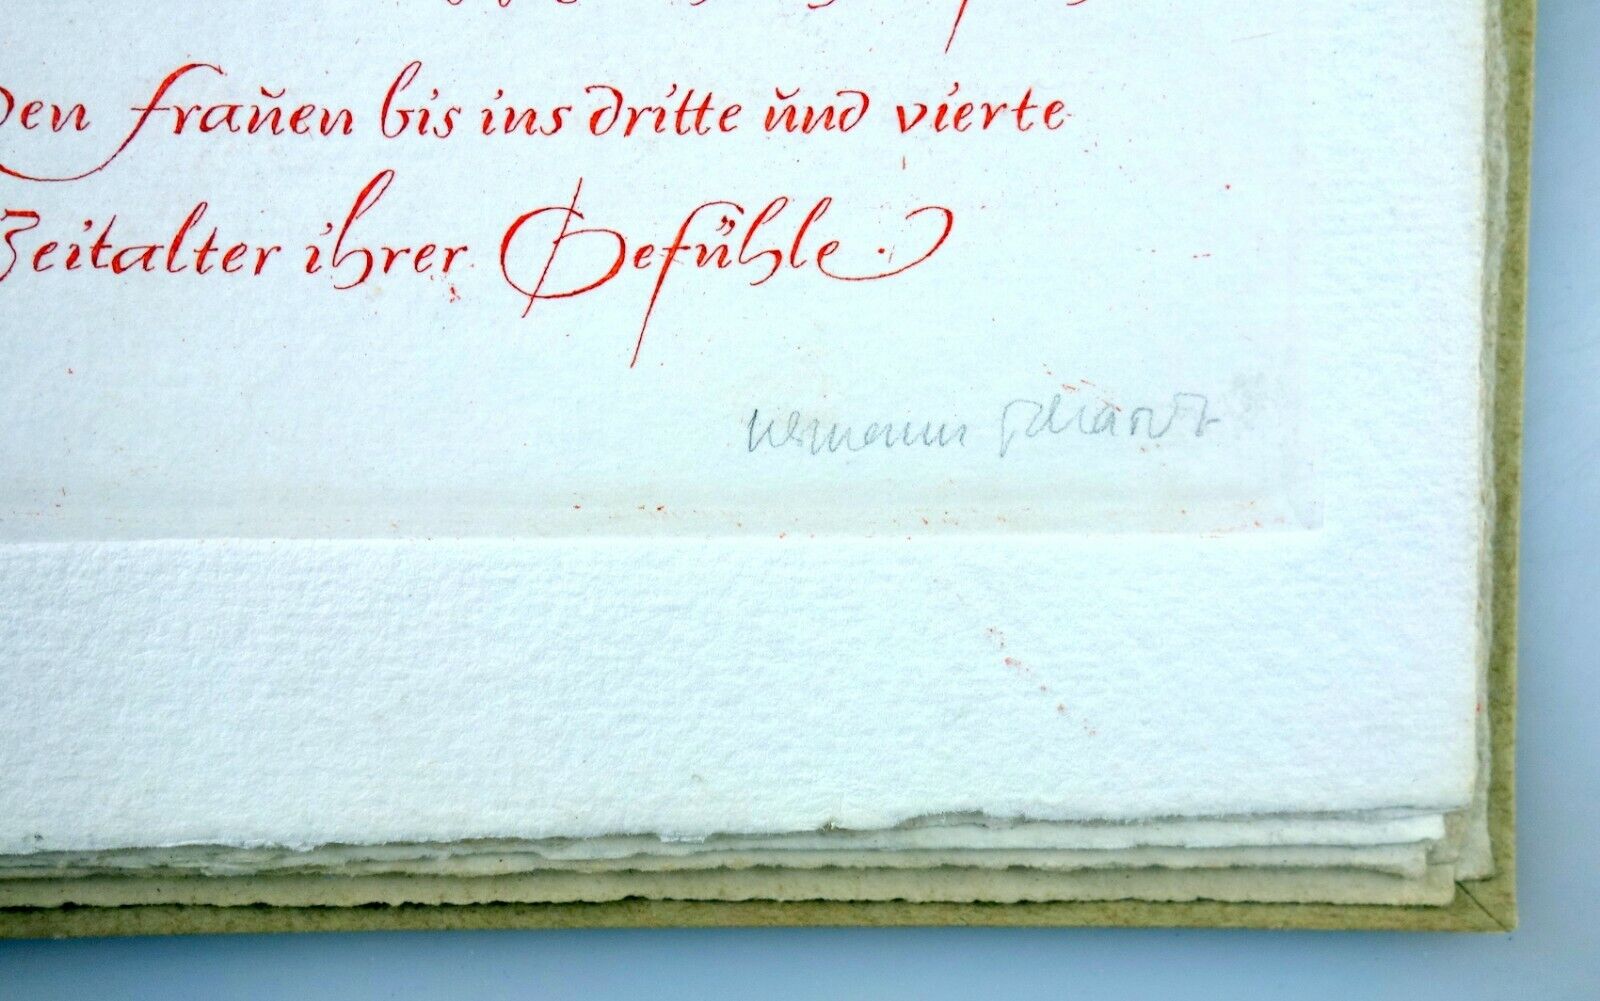 den fraŭen bis ins dritte ŭnd vierte
Zeitalter ihrer Gefühle.
hermann